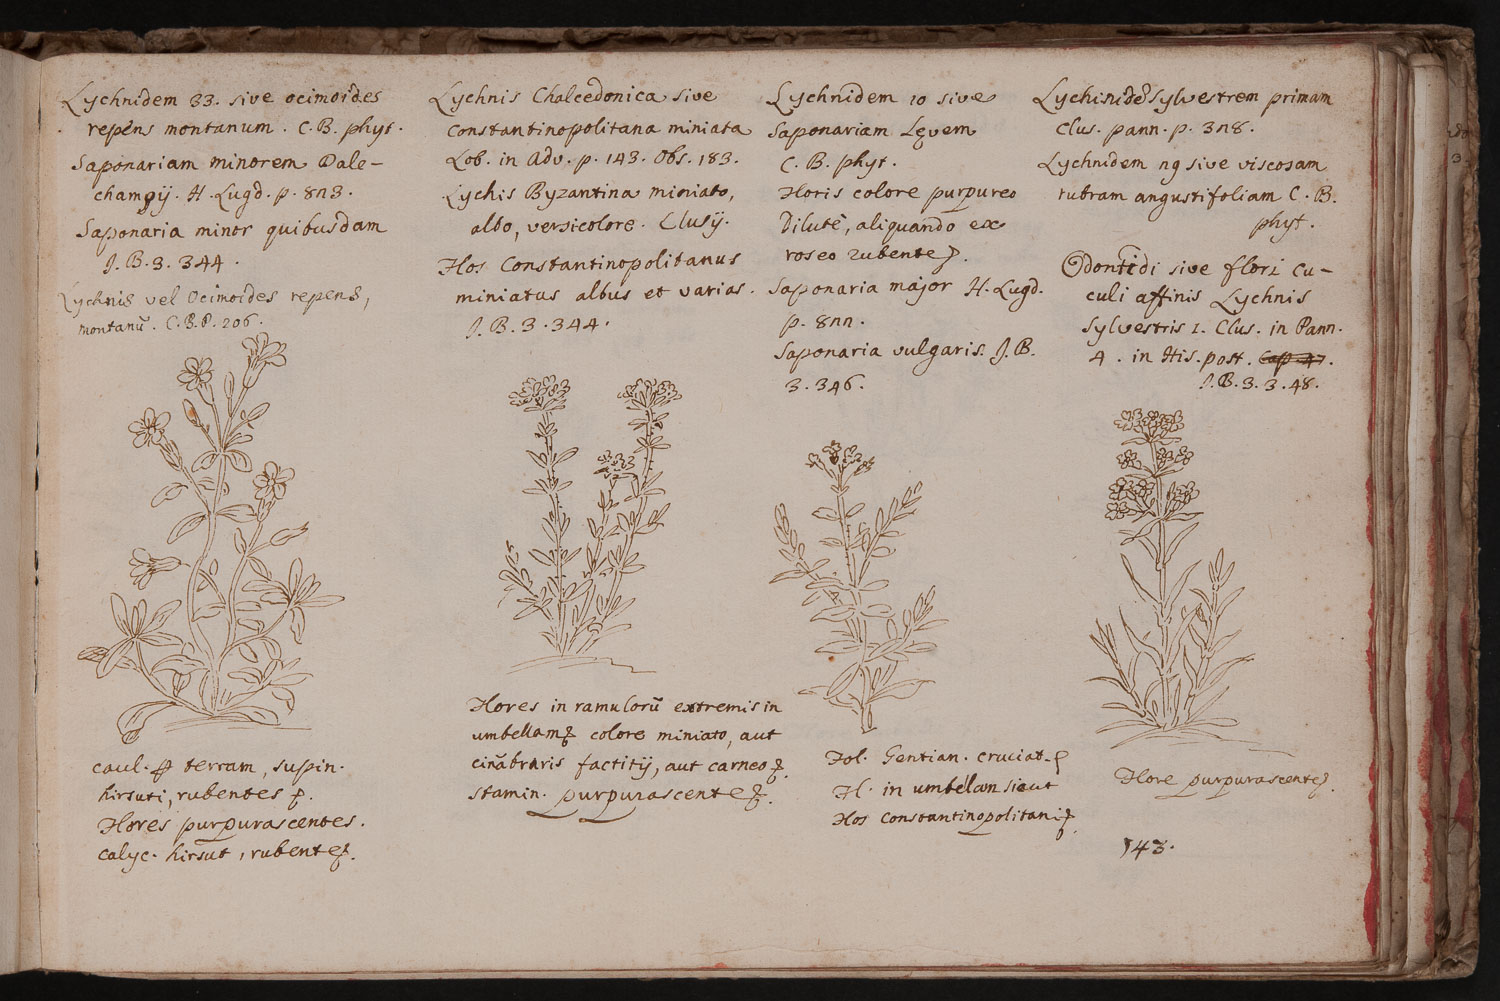 Lychnidem 33. sive ocimoides
repens montanum. C. B. phyt.
Saponariam minorem Dale-
champij. H. Lugd. p. 8n3.
Saponaria minor quibusdam
J. B. 3. 344.
Lychnis vel Ocimoides repens,
montanũ. C. B. P. 206.
caul. terram, supin.
hirsuti, rubentes
Flores purpurascentes.
calyc. hirsut, rubente
Lychnis Chalcedonica sive
Constantinopolitana miniata
Lob. in Adv. p. 143. Obs. 183.
Lychis Byzantina miniato,
albo, versicolore. Clusij.
Flos Constantinopolitanus
miniatus albus et varias.
J. B. 3. 344.
Flores in ramulorũ extremis in
umbellam colore miniato, aut
cinãbraris factitij, aut carneo
stamin. purpurascente
Lychnidem 10 sive
Saponariam Lęvem
C. B. phyt.
Floris colore purpureo
Dilute, aliquando ex
roseo rubente
Saponaria major H. Lugd.
p. 8nn.
Saponaria vulgaris. J. B.
3. 346.
Fol. Gentian. cruciat.
Fl. in umbélam sicut
Flos Constantinopolitani
Lychinidẽ Sylvestrem primam
Clus. pann. p. 3n8.
Lychnidem n9 sive viscosam
rubram angustifoliam C. B.
phyt.
Odontidi sive flori cu-
culi affinis Lychnis
Sylvestris 1. Clus. in Pann.
4. in His. post.
J. B. 3. 3. 48.
Flore purpurascente
143.